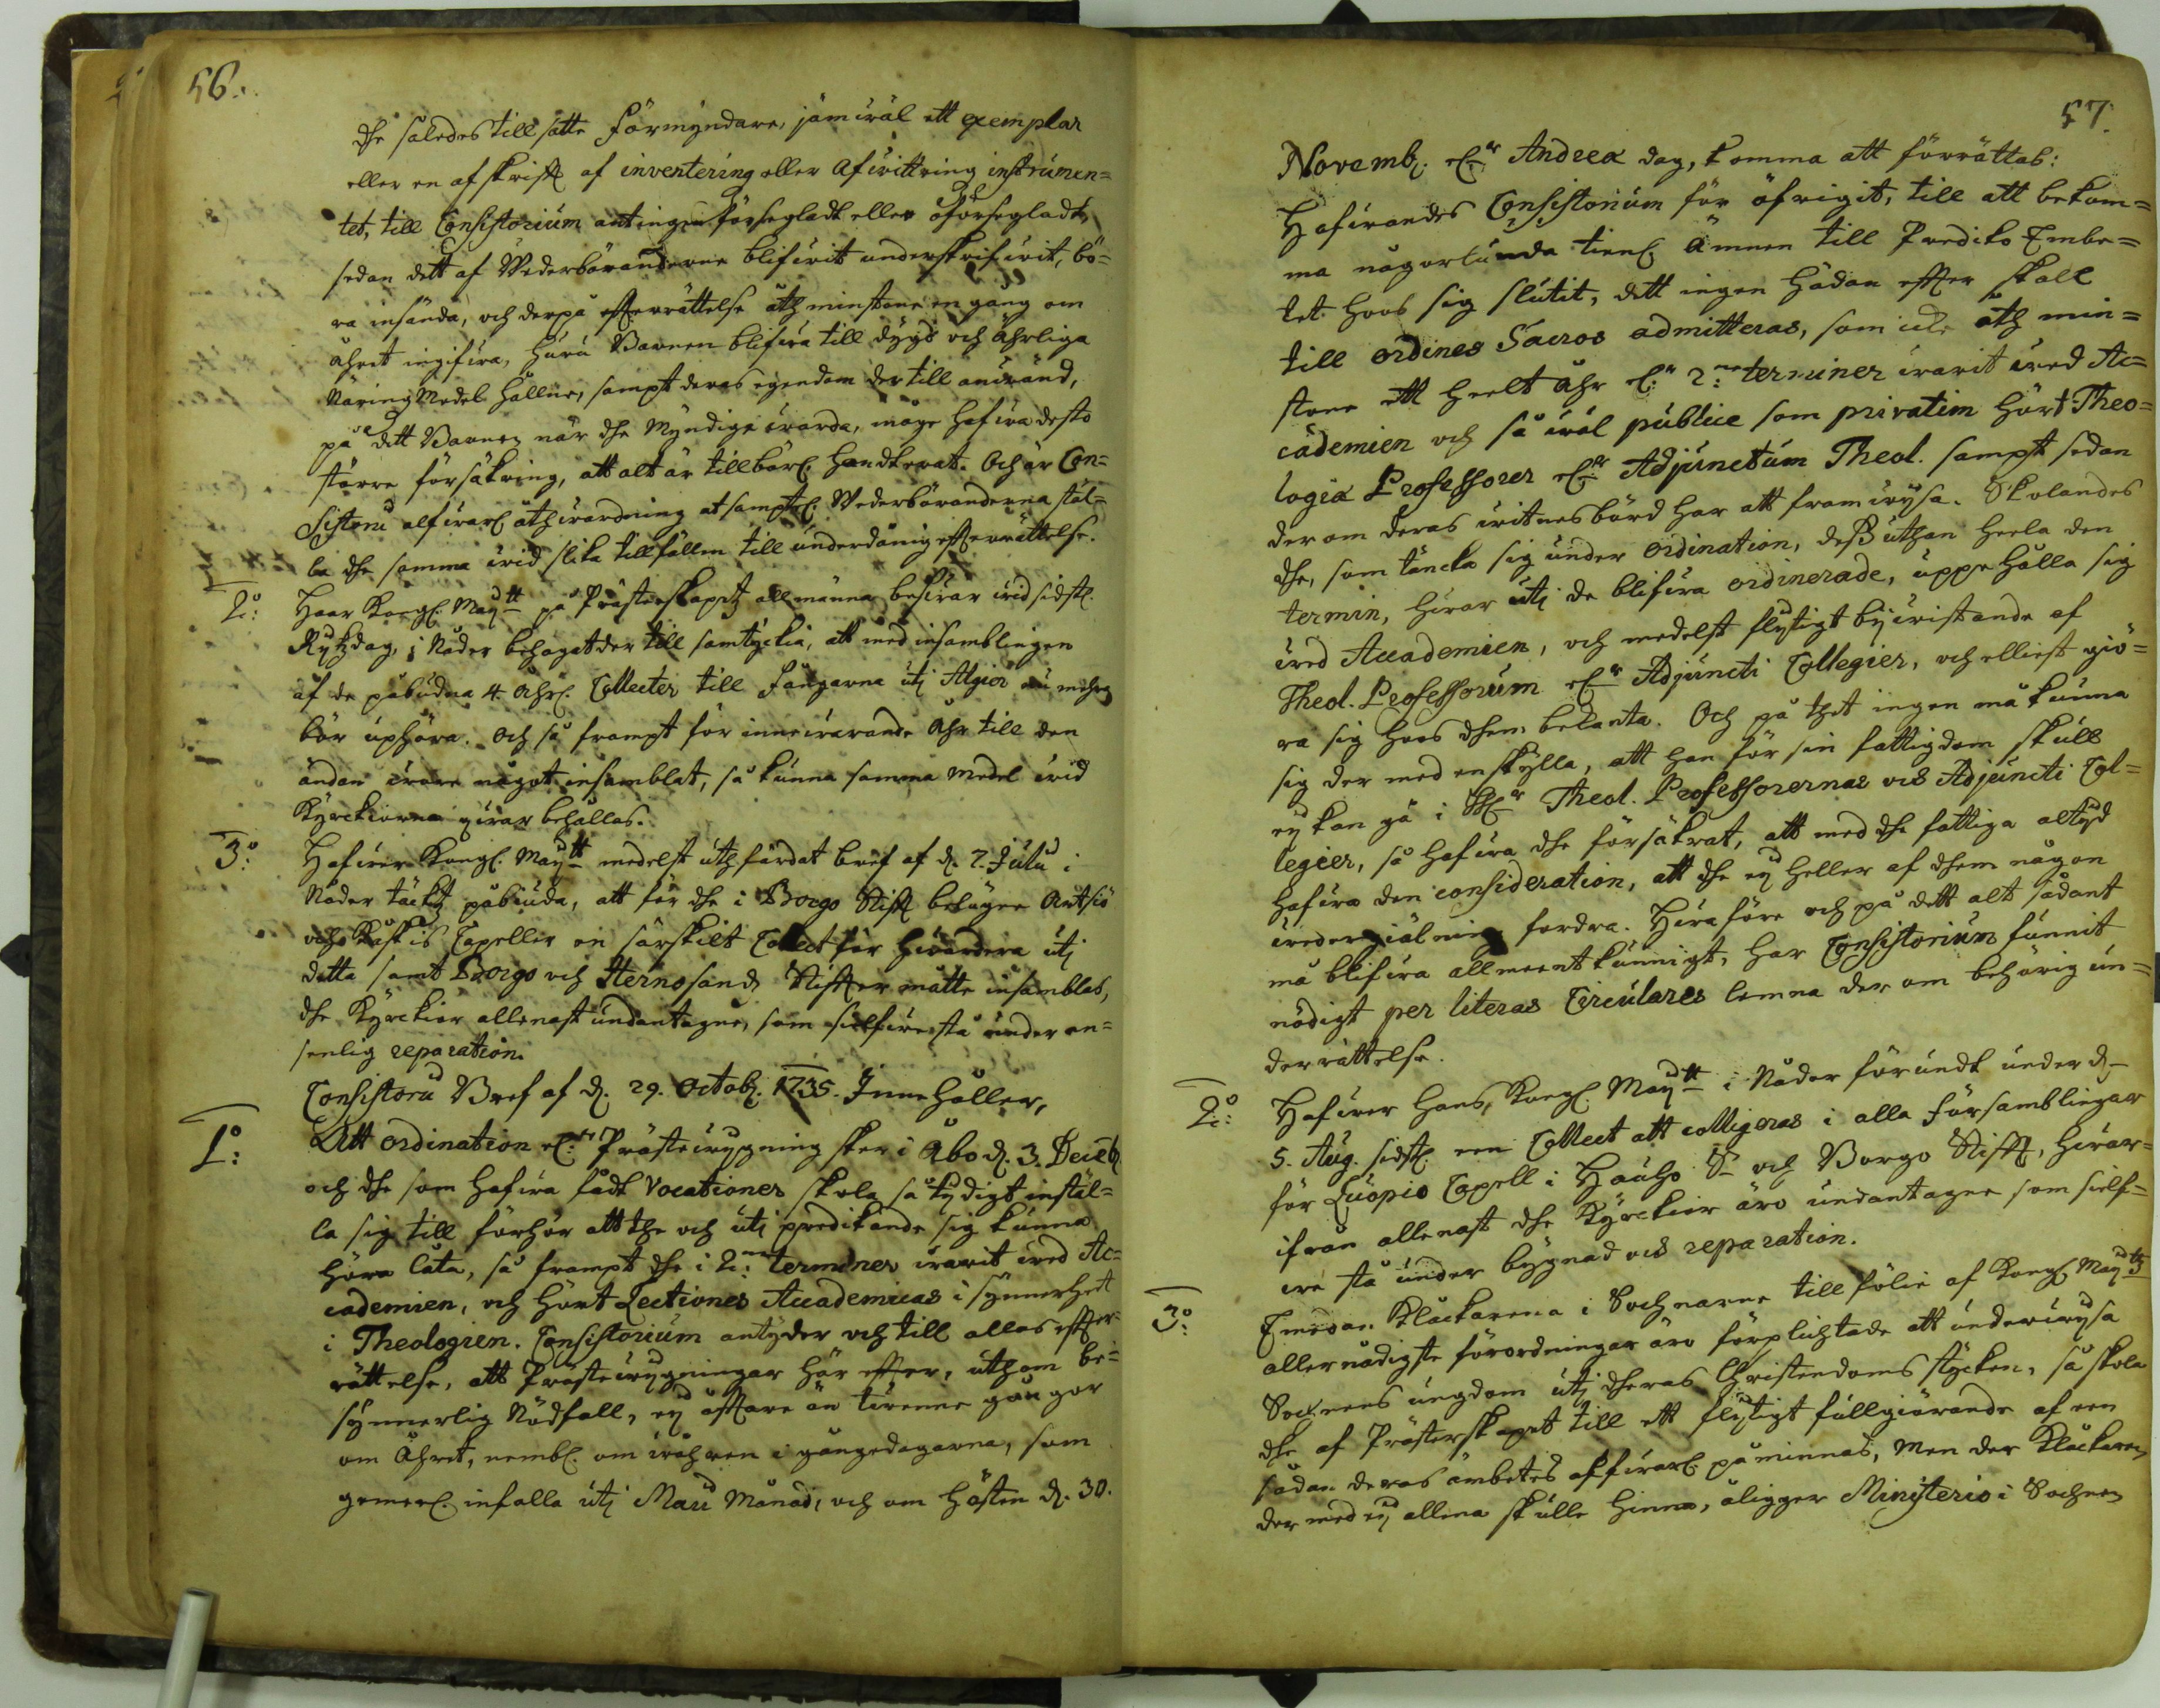 56.
dhe således tillsatte Förmyndare, jämwäl ett exemplar
eller en afskrifft af inventering eller Afwittring instrumen=
tet, till Consistorium antingen förseglat eller oförseglat,
sedan dett af Wederböranderne blifwit underskrifwit, bö=
ra insända, och derpå effterrättelse åth minstone en gång om
åhret ingifwa, huru Barnen blifwa till dygd och ährliga
Näring Medel hållne, sampt deras egendom der till anwänd,
på dett Barnen när dhe Myndige warda, måge hafwa desto
större försäkring, att alt är tillbörl. handterat. Och är Con=
Sistorii alfwarl. åthwardning at samptl. Wederböranderna stäl=
la dhe samma wid slika tillfällen till underdånig effterrättelse.
2:o Haar Kongl. Maij:tt på Prästerskapetz allmänna beswär wid sidstl.
Rijkzdag, i Nåder behagat der till samtyckia, att med insamblingen
af de påbudna 4. Åhrl. Collecter till Fångarna uti Algier nu mehra
bör uphöra. Och så frampt för innewarande Åhr till den
ändan wore något insamblat, så kunna samma Medel wid
Kyrckiorna qwar behållas.
3:o Hafwer Kongl. Maij:tt medelst uthfärdat bref af d. 7. Julii i
Nåder täckts påbiuda, att för dhe i Borgo Stifft belägne Artsiö
och Kuskis Capeller en särskilt Collect för hwardera uti
detta samt Borgo och Hernosands Stiffter måtte insamblas,
dhe Kyrckior allenast undantagne, som sielfwe stå under an=
senlig reparation.
Consistorii Bref af d. 29. Octob. 1735. Innehåller,
1:o Att ordination el:r Prästewijgning sker i Åbo d. 3. Decēb.
och dhe som hafwa fådt Vocationer skola så tijdigt instäl=
la sig till förhör att the och uti predikande sig kunna
höra låta, så frampt dhe i 2:ne terminer warit wed Ac=
cademien, och hört Lectiones Accademicas i synnerhet
i Theologien. Consistorium antyder och till allas effter=
rättelse, att Prästewijgningar här effter, uthom be=
synnerlig Nödfall, eij offtare än twenne gångor
om Åhret, nembl. om wåhren i gångedagarna, som
gemenl. infalla uti Maii Månad, och om hösten d. 30.
57.
Novemb. el:r Andreæ dag, komma att förrättas:
Hafwandes Consistorium för öfrigit, till att bekom=
ma någorlunda tienl. ämnen till Prediko Embe=
tet hoos sig slutit, dett ingen hädan effter skall
till ordines Sacros admitteras, som icke åth min=
stone ett heelt åhr el:r 2:ne terminer warit wed Ac=
cademien och så wäl publice som privatim hört Theo=
logiæ Professorer el:r Adjunctum Theol. sampt sedan
der om deras witnesbörd har att framwijsa. Skolandes
dhe, som täncka sig under ordination, dessuthan heela den
termin, hwar uti de blifwa ordinerade, uppehålla sig
wed Accademien, och medelst flijtigt bijwistande af
Theol. Professorum el:r Adjuncti Collegier, och elliest giö=
ra sig hoos dhem bekanta. Och på thet ingen må kunna
sig der med enskylla, att han för sin fattigdom skull
eij kan gå i Theol. Professorernas och Adjuncti Col=
legier, så hafwa dhe försäkrat, att med dhe fattiga altijd
hafwa den consideration, att dhe eij heller af dhem någon
wedergiälning fordra. Hwaföre och på dett alt sådant
må blifwa allment kunnigt, har Consistorium funnit
nödigt per literas Circulares lemna der om behörig un=
derrättelse.
2:o Hafwer Hans, Kongl. Maij:tt i Nåder förundt under d.
5. Aug. sidstl. een Collect att colligeras i alla Församblingar
för Luopio Capell i Hauho S:n och Borgo Stifft, hwar=
ifrån allenast dhe Kyrckior äro undantagne som sielf=
we stå under bygnad och reparation.
3:o Emedan Klåckarena i Sochnarne till fölie af Kongl. Maij:ttz
allernådigste förordningar äro förplichtade att underwijsa
Sochnens ungdom uti dheras Christendoms stycken, så skola
dhe af Prästerskapet till ett flijtigt fullgiörande af een
sådan deras ämbetes alfwarl. påminnas, Men der Klåckaren
der med eij allena skulle hinna, åligger Ministerio i Sochnen